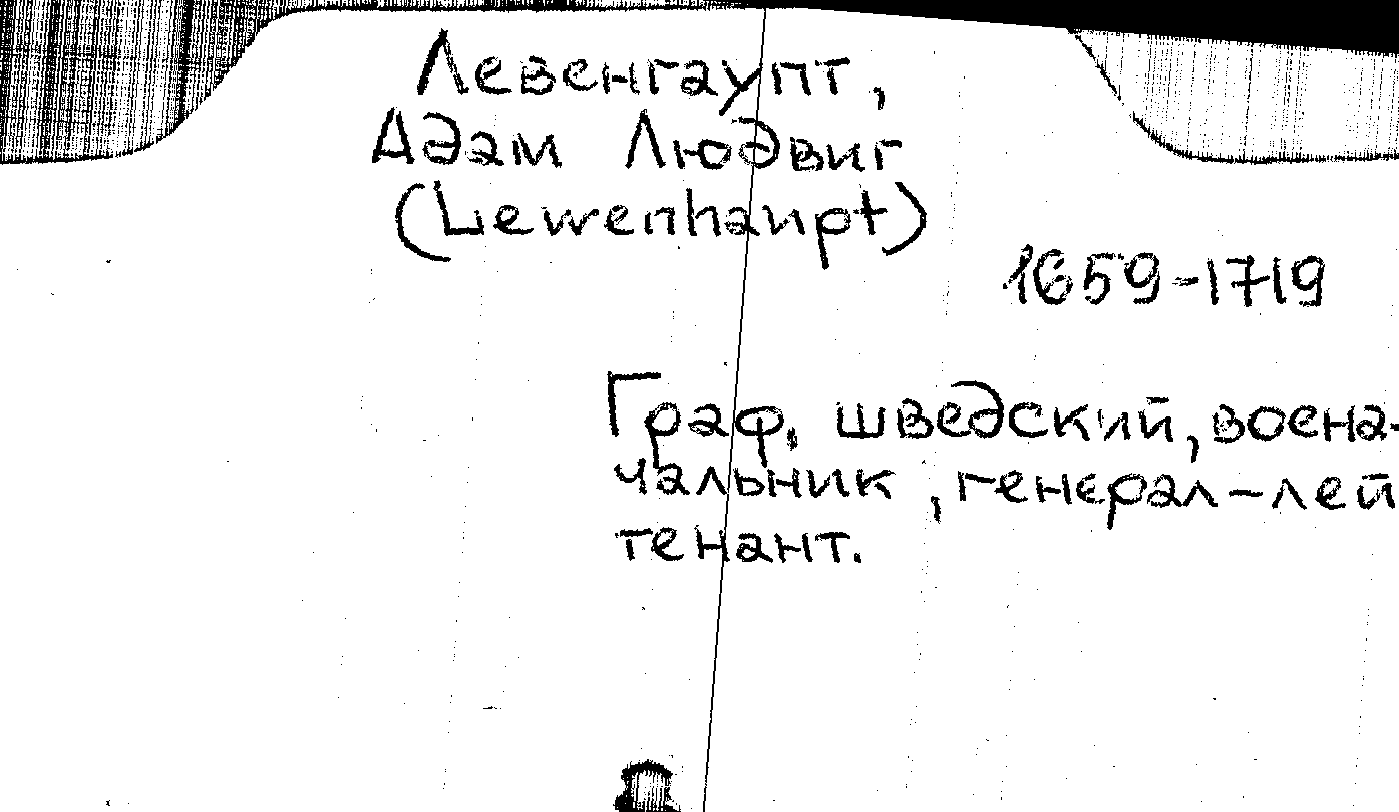 Левенгаупт,
Адам Людвиг
(Lewenhaupt)
1659-1719
Граф, шведский, воена-
чальник, генерал-лей
тенант.